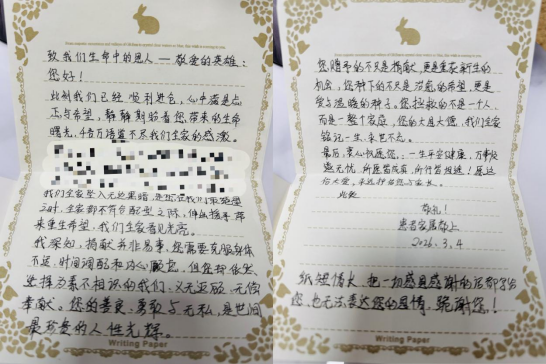 致我们生命中的恩人——敬爱的英雄：
您好！
此刻我们已经顺利进仓，心中满是忐
忑与希望，静静期盼着您带来的生命
曙光，千言万语道不尽我们全家的感激。
我们全家坠入无边黑暗
之时，全家都不符合配型之际，伸出援手，带
来重生希望，我们全家看见光亮。
我深知，捐献并非易事，您需要克服身体
不适、时间调配和内心顾虑，但您却依然
选择为素不相识的我们，义无反顾、无偿
奉献。您的善良、勇敢与无私，是世间
最珍贵的人性光辉。
Writing Paper
您赠予的不只是捐献，更是重获新生的
机会，您种下的不只是治愈的希望，更是
爱与温暖的种子。您拯救的不是一个人，
而是一整个家庭，您的大恩大德，我们全家
铭记一生，永世不忘。
最后，衷心祝愿您，一生平安健康，万事快
意无忧，所愿皆所有，所行皆坦途！愿这
份大爱，永远
此致
敬礼！
患者家属敬上
2026.3.4
纸短情长，把一切感恩感谢的话都予给
您，也无法表达您的恩情，跪谢您！
Writing Paper